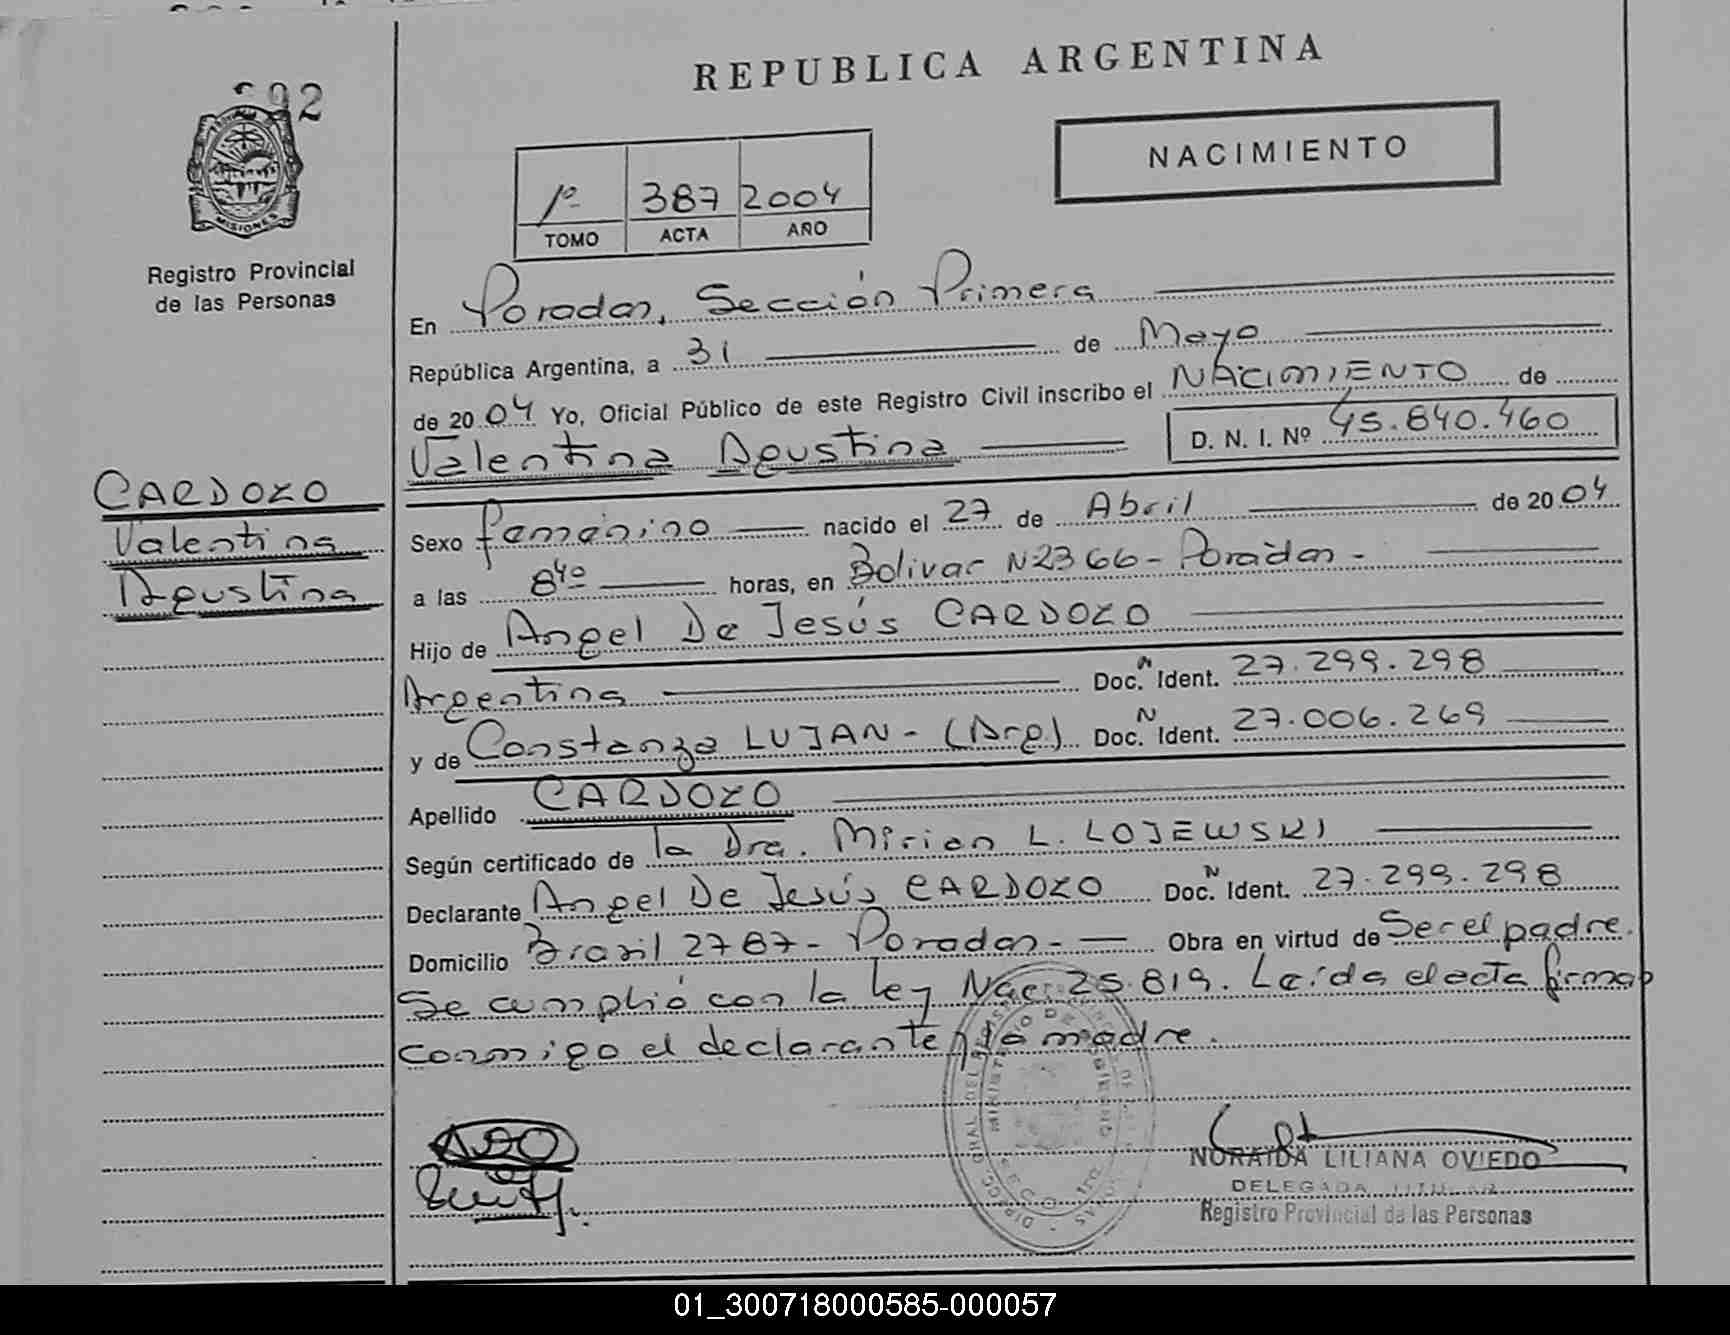 REPUBLICA ARGENTINA
NACIMIENTO
MISIONES
Registro Provincial
de las Personas
1º 387 2004
TOMO ACTA AÑO
En Posadas, Sección Primera
República Argentina, a 31 de Mayo
de 2004 Yo, Oficial Público de este Registro Civil inscribo el NACIMIENTO de
Valentina Agustina D. N. I. Nº 45.840.460
CARDOZO
Valentina
Agustina
Sexo femenino nacido el 27 de Abril de 2004
a las 8 40 horas, en Bolivar N 2366 - Posadas -
Hijo de Angel De Jesús CARDOZO
Argentina Doc. N Ident. 27.299.298
y de Constanza LUJAN - (Arg) Doc. N Ident. 27.006.269
Apellido CARDOZO
Según certificado de la Dra. Mirian L. LOJEWSKI
Declarante Angel De Jesús CARDOZO Doc. N Ident. 27.299.298
Domicilio Brasil 2787 - Posadas - Obra en virtud de Ser el padre.
Se cumplió con la ley Nac. 25.819. Leída el acta firman
conmigo el declarante y la madre.
NORAIDA LILIANA OVIEDO
DELEGADA TITULAR
Registro Provincial de las Personas
01_300718000585-000057